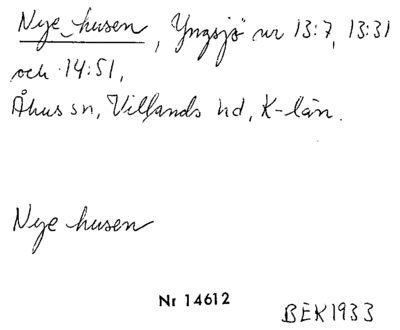 Nye husen, Yngsjö nr 13:7, 13:31
och 14:51,
Åhus sn, Villands hd, K-län.
Nye husen
Nr 14612
BEK1933